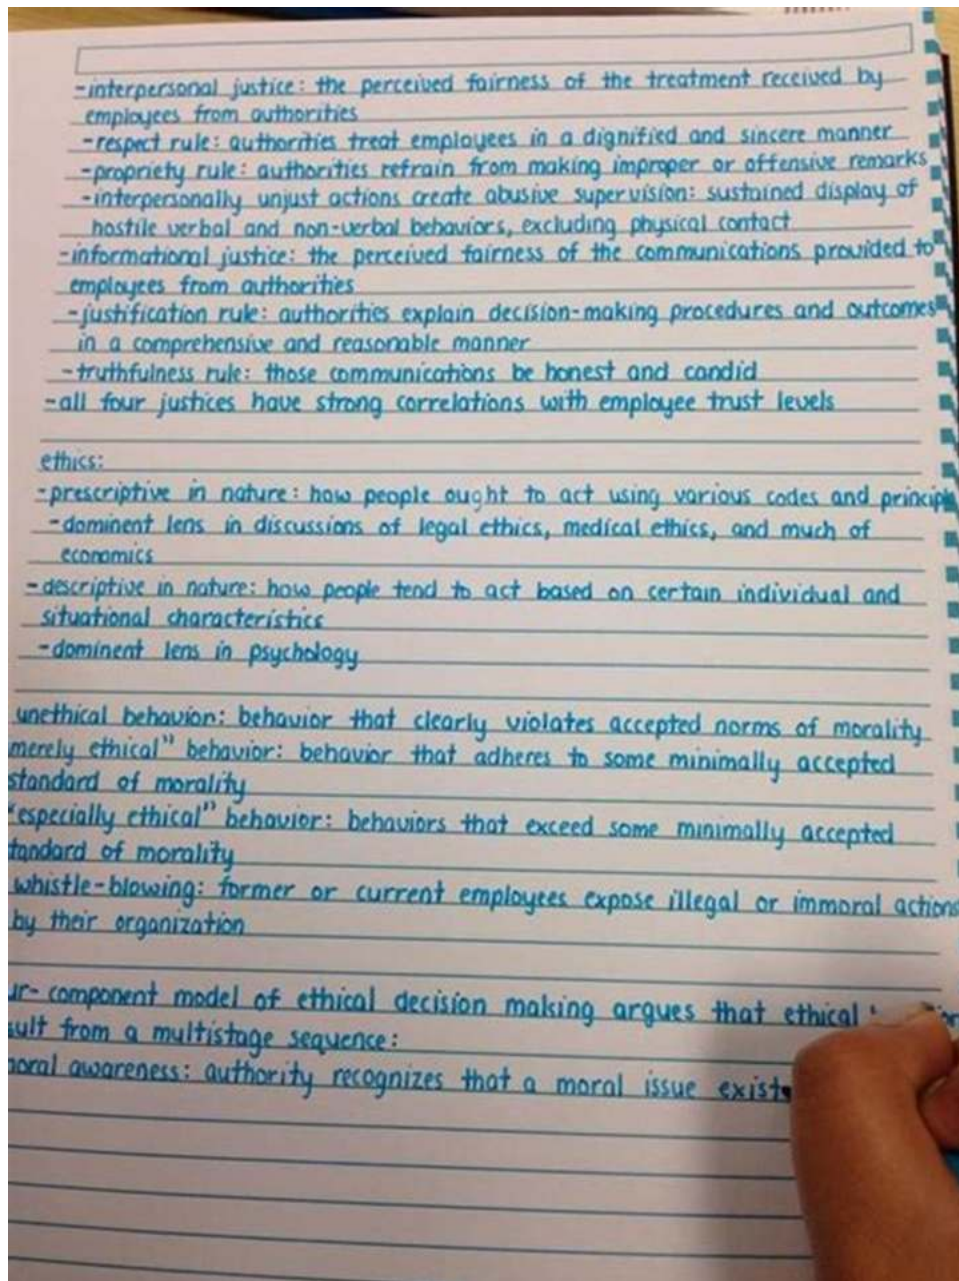 -interpersonal justice: the perceived fairness of the treatment received by
employees from authorities
-respect rule: authorities treat employees in a dignified and sincere manner
-propriety rule: authorities refrain from making improper or offensive remarks
-interpersonally unjust actions create abusive supervision: sustained display of
hostile verbal and non-verbal behaviors, excluding physical contact
-informational justice: the perceived fairness of the communications provided to
employees from authorities
-justification rule: authorities explain decision-making procedures and outcomes
in a comprehensive and reasonable manner
-truthfulness rule: those communications be honest and candid
-all four justices have strong correlations with employee trust levels
ethics:
-prescriptive in nature: how people ought to act using various codes and principl
-dominent lens in discussions of legal ethics, medical ethics, and much of
economics
-descriptive in nature: how people tend to act based on certain individual and
situational characteristics
-dominent lens in psychology
unethical behavior: behavior that clearly violates accepted norms of morality
merely ethical" behavior: behavior that adheres to some minimally accepted
standard of morality
"especially ethical" behavior: behaviors that exceed some minimally accepted
tandard of morality
whistle-blowing: former or current employees expose illegal or immoral actions
by their organization
ur-component model of ethical decision making argues that ethical
sult from a multistage sequence:
oral awareness: authority recognizes that a moral issue exists